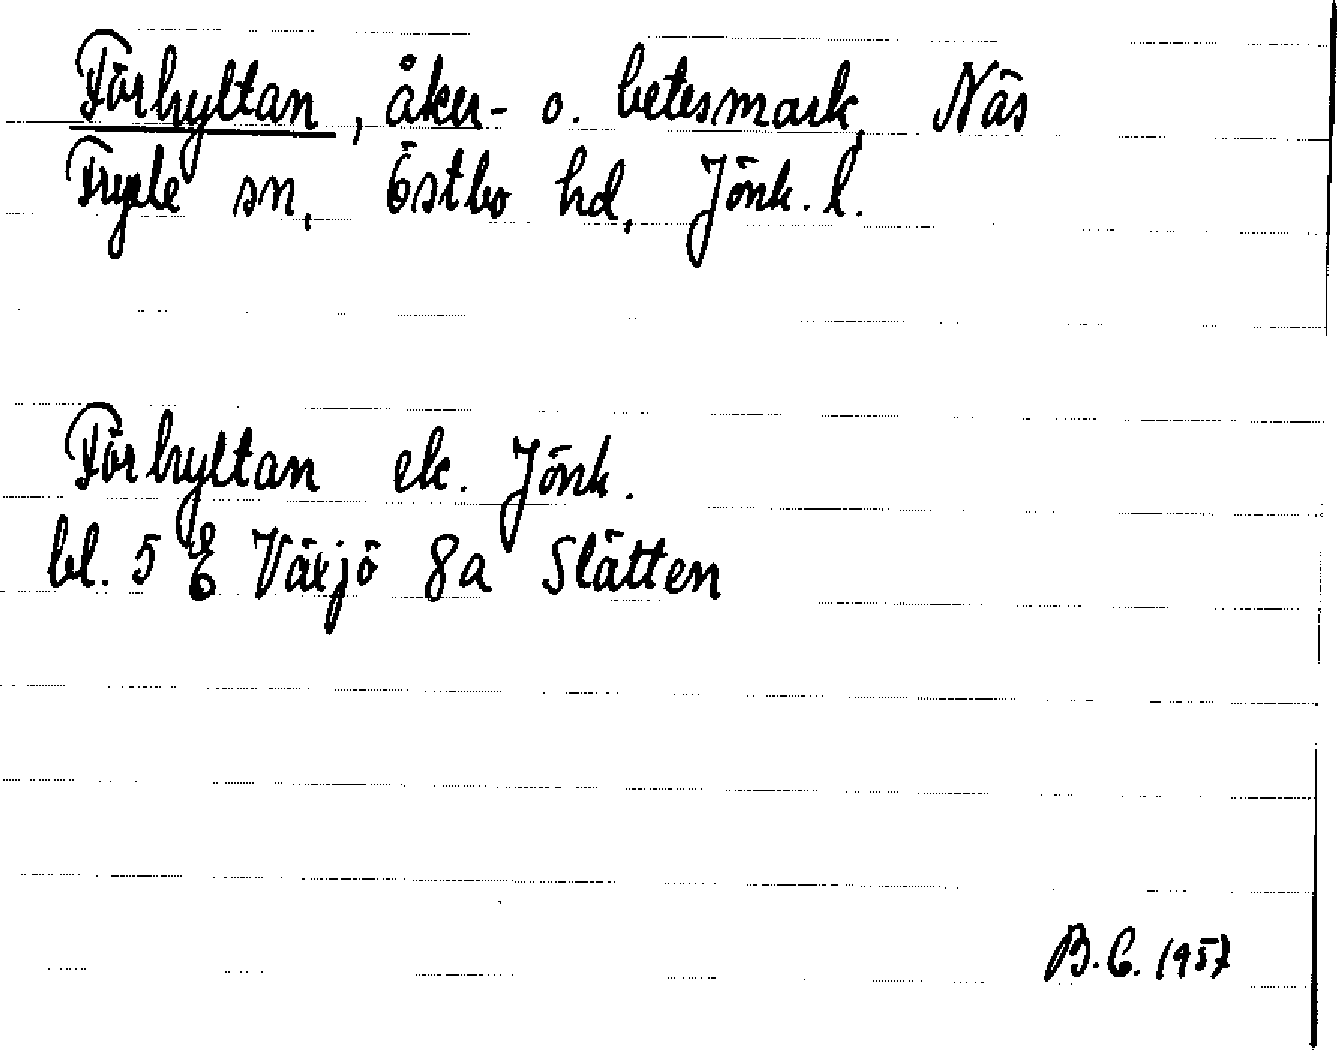 Förhyltan, åker- o. betesmark, Näs
Fryele sn, Östbo hd, Jönk. l.
Förhyltan ek. Jönk.
bl. 5 E Växjö 8a Slätten
B.C. 1957